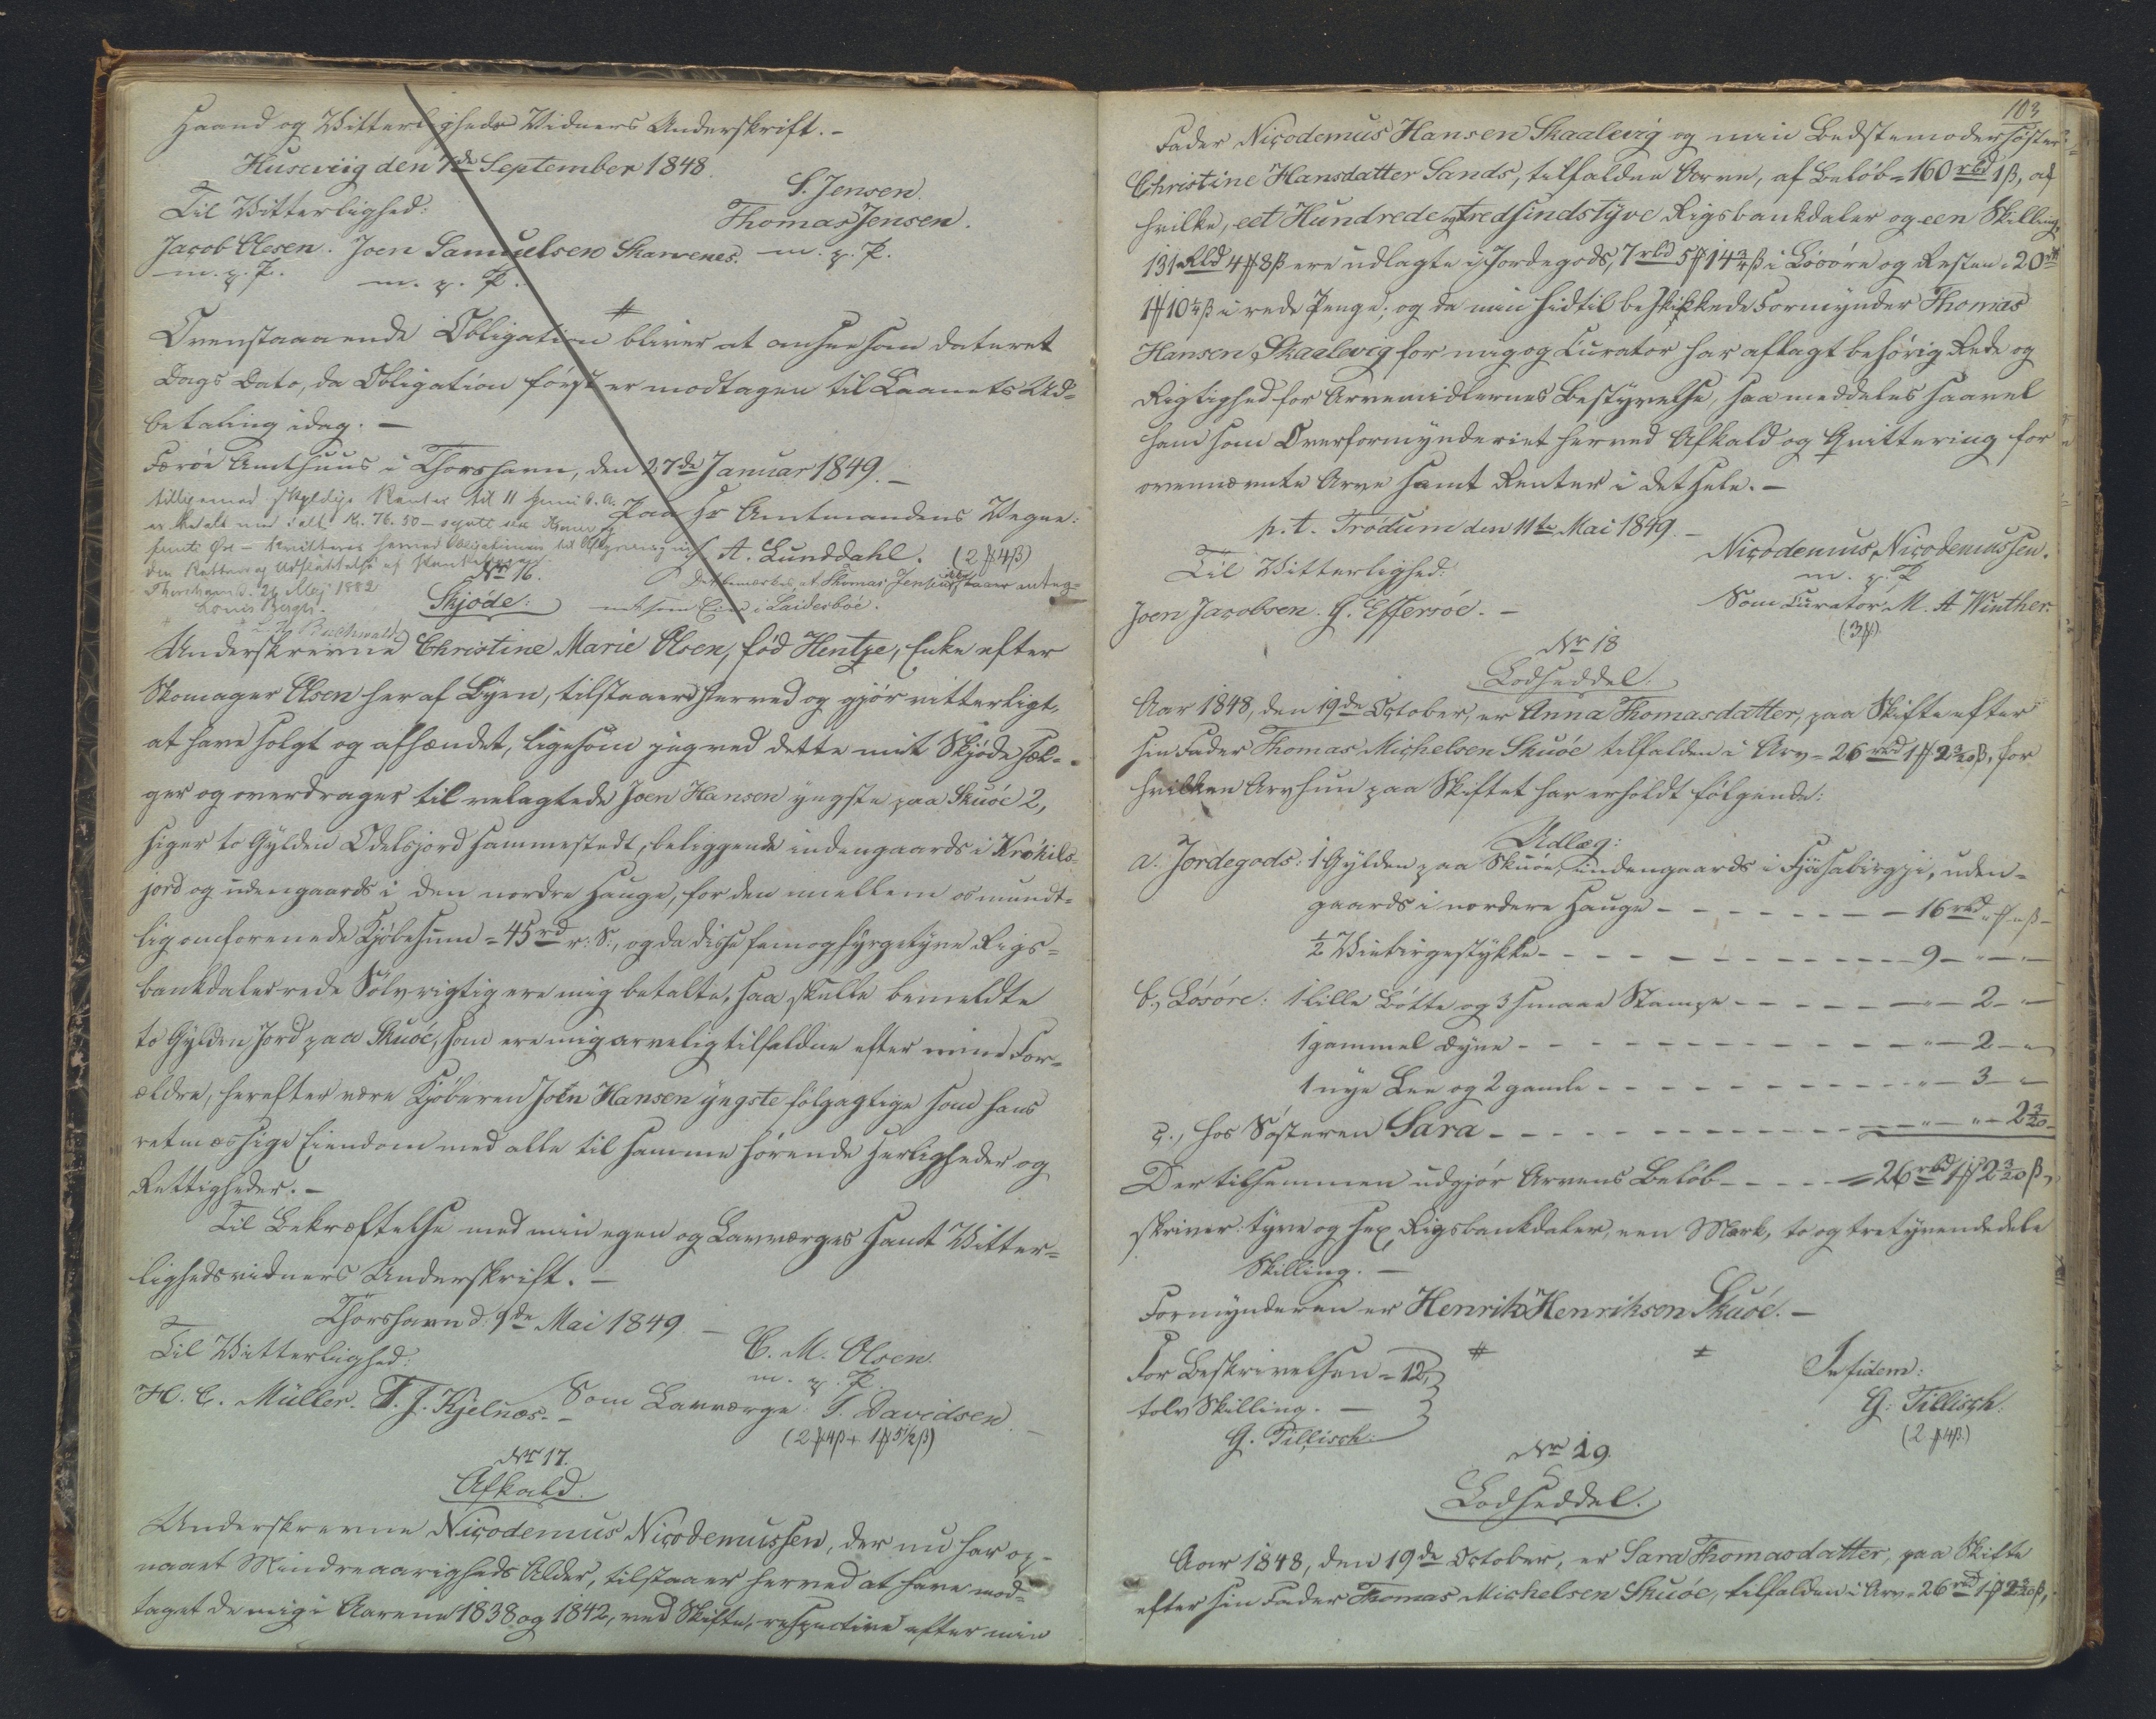 Haand og Vitterligheds Vidners Underskrift. -
Huseviig den 7de September 1848.
S. Jensen.
Til Vitterlighed:
Thomas Jensen.
Jacob Olesen. Joen Samuelsen Skarvenes. m. p. P.
m. p. P. m. p. P.
Ovenstaaende Obligation bliver at ansee som dateret
Dags Dato, da Obligation först er modtagen til Laanets Ud=
betaling idag. -
Færöe Amthuus i Thorshavn, den 27de Januar 1849. -
tilligemed skyldige Renter til 11 Juni d. A.
Paa Hr Amtmandens Vegne:
er betalt med ialt Kr. 76. 50 - sytti sex Kroner
femti Öre - kvitteres herved Obligationen til Aflysning
A. Lunddahl. (2 ℳ 4 ß)
af Pantebogen
Thorshavn d. 24 Maj 1882
Det bemærkes, at Thomas Jensen ikke staaer anteg=
No 16.
net som Eier i Laidesböe.
Louis Bergh.
Skjöde:
Underskrevne Christine Marie Olsen, föd Hentze, Enke efter
Skomager Olsen her af Byen, tilstaaer herved og gjör vitterligt,
at have solgt og afhændet, ligesom jeg ved dette mit Skjöde sæl=
ger og overdrager til velagtede Joen Hansen yngste paa Skuöe 2,
siger to Gylden Odelsjord sammestedt, beliggende indengaards i Krökils=
jord og udengaards i den nordre Hauge, for den mellem os mundt=
lig omforenede Kjöbesum = 45 rd r: S., og da disse fem og fyrgetyve Rigs=
bankdaler rede Sölv rigtig ere mig betalte, saa skulle bemeldte
to Gylden Jord paa Skuöe, som ere mig arvelig tilfaldne efter mine For=
ældre, herefter være Kjöberen Joen Hansen yngste fölgagtige som hans
retmæssige Eiendom med alle til samme hörende Herligheder og
Rettigheder. -
Til Bekræftelse med min egen og Lavværges samt Vitter=
lighedsvidners Underskrift. -
Thorshavn d: 9de Mai 1849. -
Til Vitterlighed:
C. M. Olsen.
m. p. P.
H. C. Müller. T. J. Kjelnæs. - Som Lavværge: T. Davidsen. -
(2 ℳ 4 ß + 1 ℳ 5½ ß)
No 17.
Afkald.
Underskrevne Nicodemus Nicodemussen, der nu har op=
naaet Mindreaarigheds Alder, tilstaaer herved at have mod=
taget de mig i Aarene 1838 og 1842, ved Skifte, respective efter min
103
Fader Nicodemus Hansen Skaalevig og min Bedstemodersöster
Christine Hansdatter Sands, tilfaldne Arve, af Belöb = 160 rbd 1 ß, af
hvilke, eet Hundrede og tredsindstyve Rigsbankdaler og een Skilling,
131 Rbd 4 ℳ 8 ß ere udlagte i Jordegods, 7 rbd 5 ℳ 14¾ ß i Lösöre og Resten 20 rbd
1 ℳ 10¼ ß i rede Penge; og da min hidtil beskikkede Formynder Thomas
Hansen Skaalevig for mig og Curator har aflagt behörig Rede og
Rigtighed for Arvemidlernes Bestyrelse, saa meddeles saavel
ham som Overformynderiet herved Afkald og Qvittering for
ovennævnte Arve samt Renter i det hele. -
p. t. Trödum den 11te Mai 1849. -
Til Vitterlighed:
Nicodemus Nicodemussen.
m. p. P.
Joen Jacobsen. H. Effersöe. -
Som Curator: M. A. Winther.
(3 ℳ)
No 18
Lodseddel.
Aar 1848, den 19de October, er Anna Thomasdatter, paa Skifte efter
sin Fader Thomas Michelsen Skuöe tilfalden i Arv = 26 rbd 1 ℳ 2 3/20 ß, for
hvilken Arv hun paa Skiftet har erholdt fölgende:
Udlæg:
a. Jordegods: 1 Gylden paa Skuöe, indengaards i , uden=
gaards i nordere Hauge - - - - - 16 rbd " ℳ " ß -
½ - - - - - 9 - " - " -
b., Lösöre: 1 lille Bötte og 3 smaae Stampe - - - - - " - 2 - " -
1 gammel Dyne - - - - - " - 2 - "
1 nye Lee og 2 gamle - - - - - " - 3 - "
c., hos Sösteren Sara - - - - - " - " - 2 3/20 -
Der tilsammen udgjör Arvens Belöb - - - - = 26 rbd 1 ℳ 2 3/20 ß,
skriver: tyve og sex Rigsbankdaler, een Mark, to og tre tyvendedele
Skilling. -
Formynderen er Henrik Henriksen Skuöe. -
For Beskrivelsen = 12,
In fidem:
tolv Skilling. -
G: Tillisch.
G. Tillisch.
(2 ℳ 4 ß)
No 19.
Lodseddel.
Aar 1848, den 19de October, er Sara Thomasdatter, paa Skifte
efter sin Fader Thomas Michelsen Skuöe, tilfalden i Arv = 26 rbd 1 ℳ 2 3/20 ß,